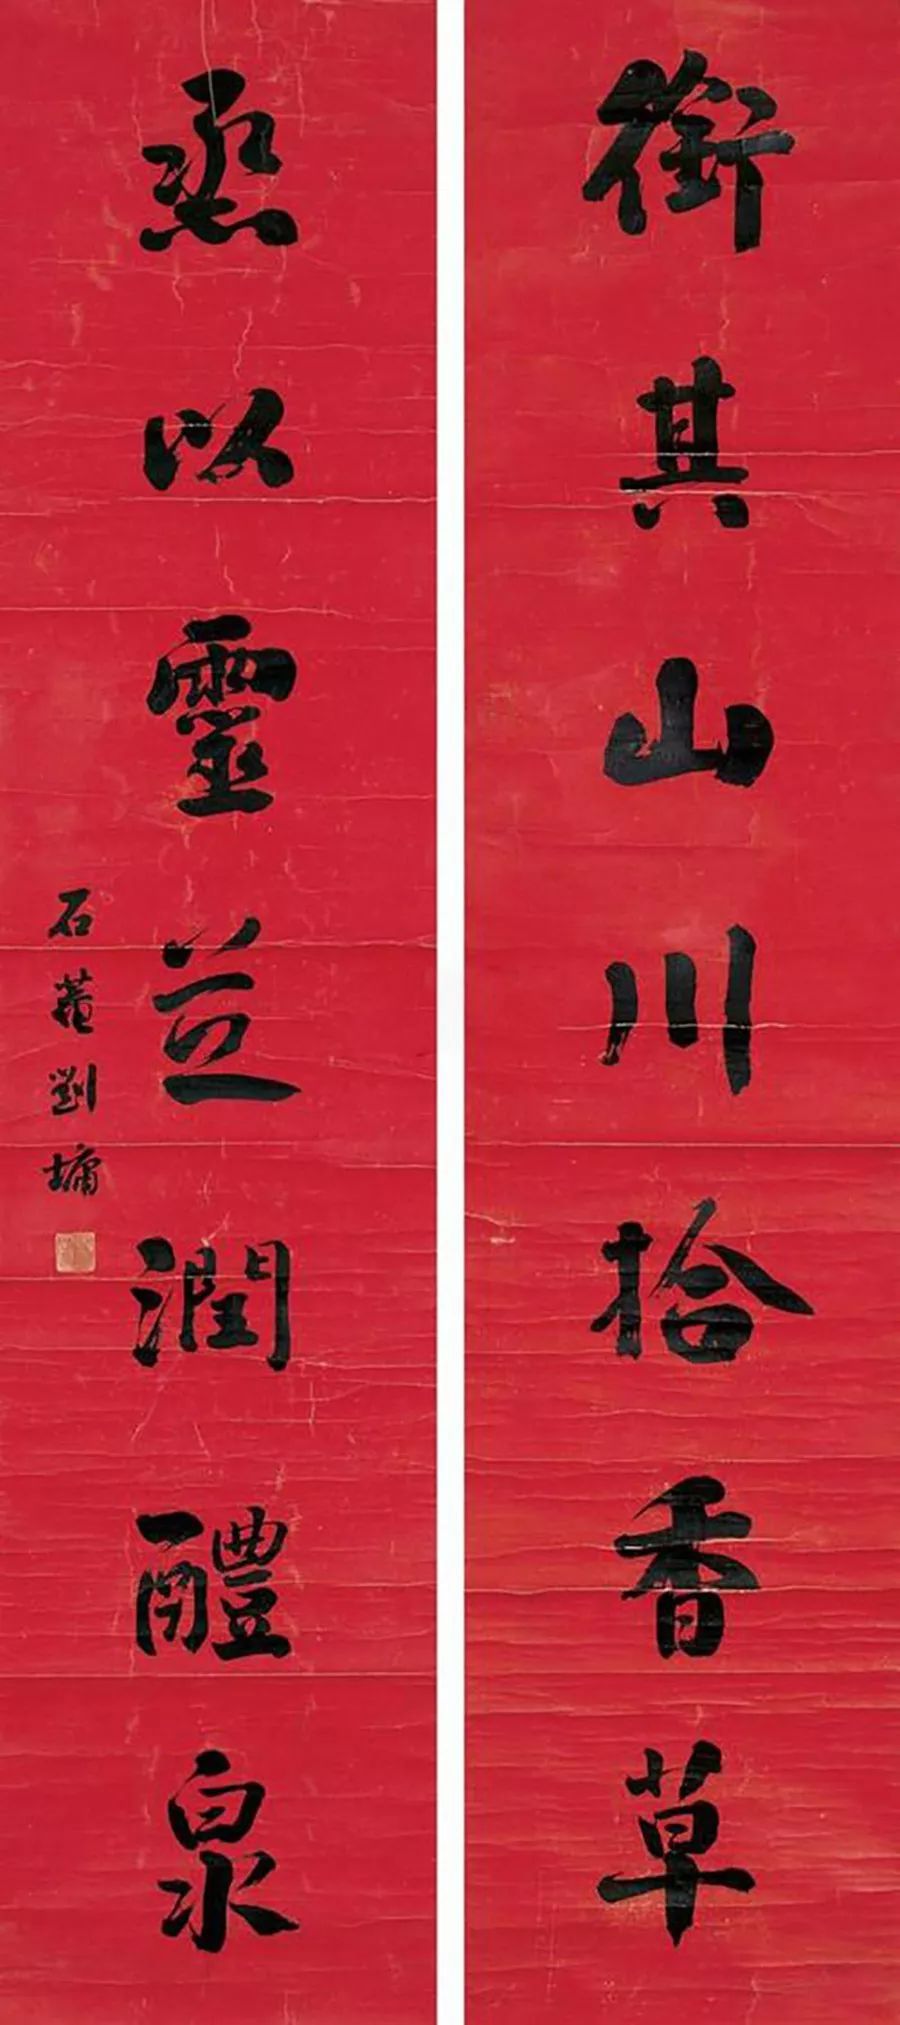 衔其山川拾香草
烝以靈芝潤醴泉
石菴劉墉